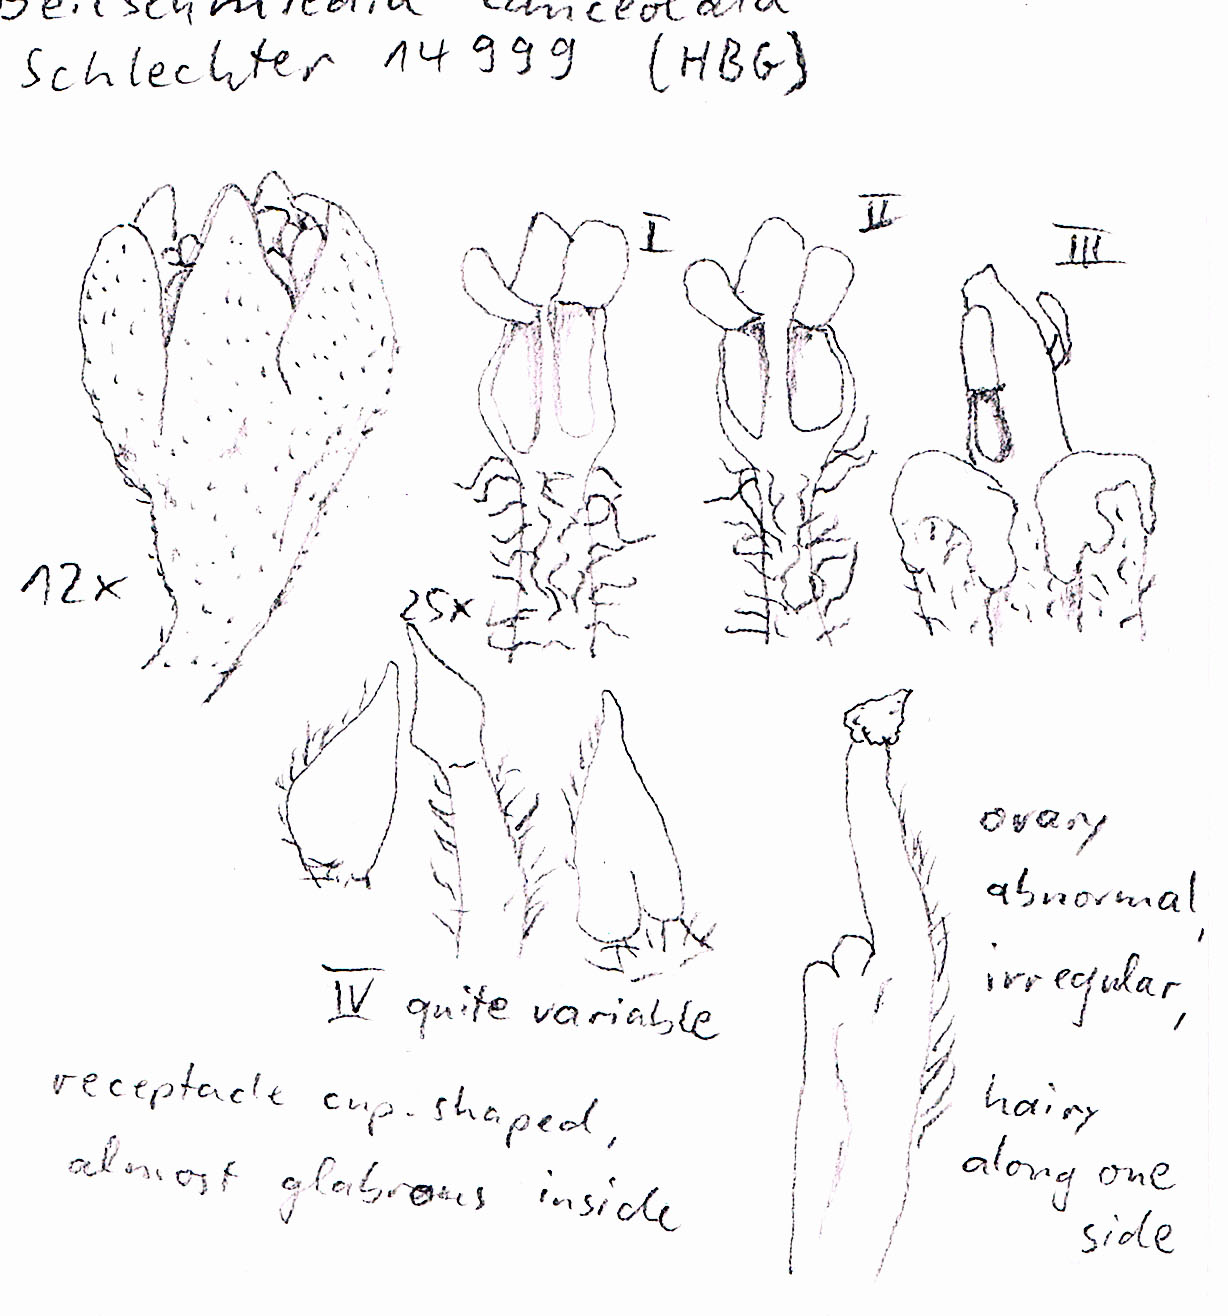 Beilschmiedia lanceolata
Schlechter 14999 (HBG)
I
II
III
12x
25x
IV quite variable
receptacle cup-shaped,
almost glabrous inside
ovary
abnormal,
irregular,
hairy
along one
side